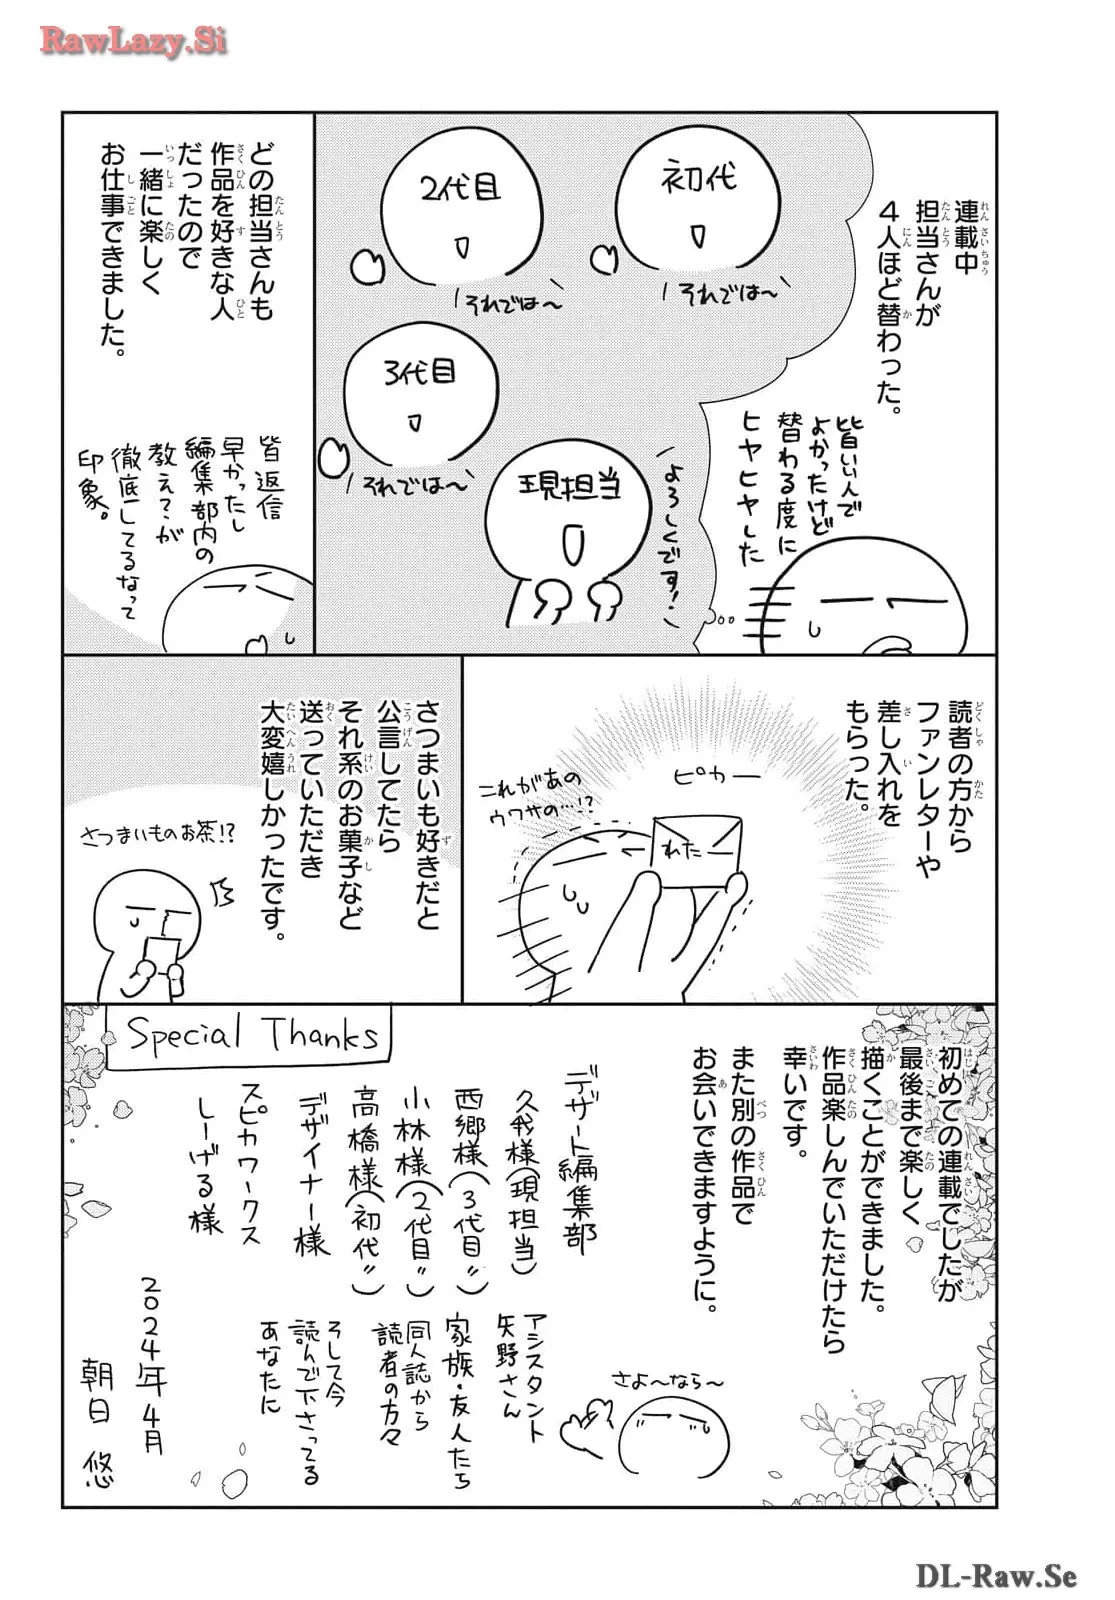 RawLazy.Si
連載中
担当さんが
4人ほど替わった。
皆いい人で
よかったけど
替わる度に
ヒヤヒヤした
初代
それでは〜
2代目
それでは〜
3代目
それでは〜
現担当
よろしくです!
どの担当さんも
作品を好きな人
だったので
一緒に楽しく
お仕事できました。
皆返信
早かったし
編集部内の
教え?が
徹底してるなって
印象。
読者の方から
ファンレターや
差し入れを
もらった。
ピカー
これがあの
ウワサの…!?
さつまいも好きだと
公言してたら
それ系のお菓子など
送っていただき
大変嬉しかったです。
さつまいものお茶!?
初めての連載でしたが
最後まで楽しく
描くことができました。
作品楽しんでいただけたら
幸いです。
また別の作品で
お会いできますように。
さよ〜なら〜
Special Thanks
デザート編集部
久我様(現担当)
西郷様(3代目〃)
小林様(2代目〃)
高橋様(初代〃)
デザイナー様
スピカワークス
しーげる様
アシスタント
矢野さん
家族・友人たち
同人誌から
読者の方々
そして今
読んで下さってる
あなたに
2024年4月
朝日 悠
DL-Raw.Se